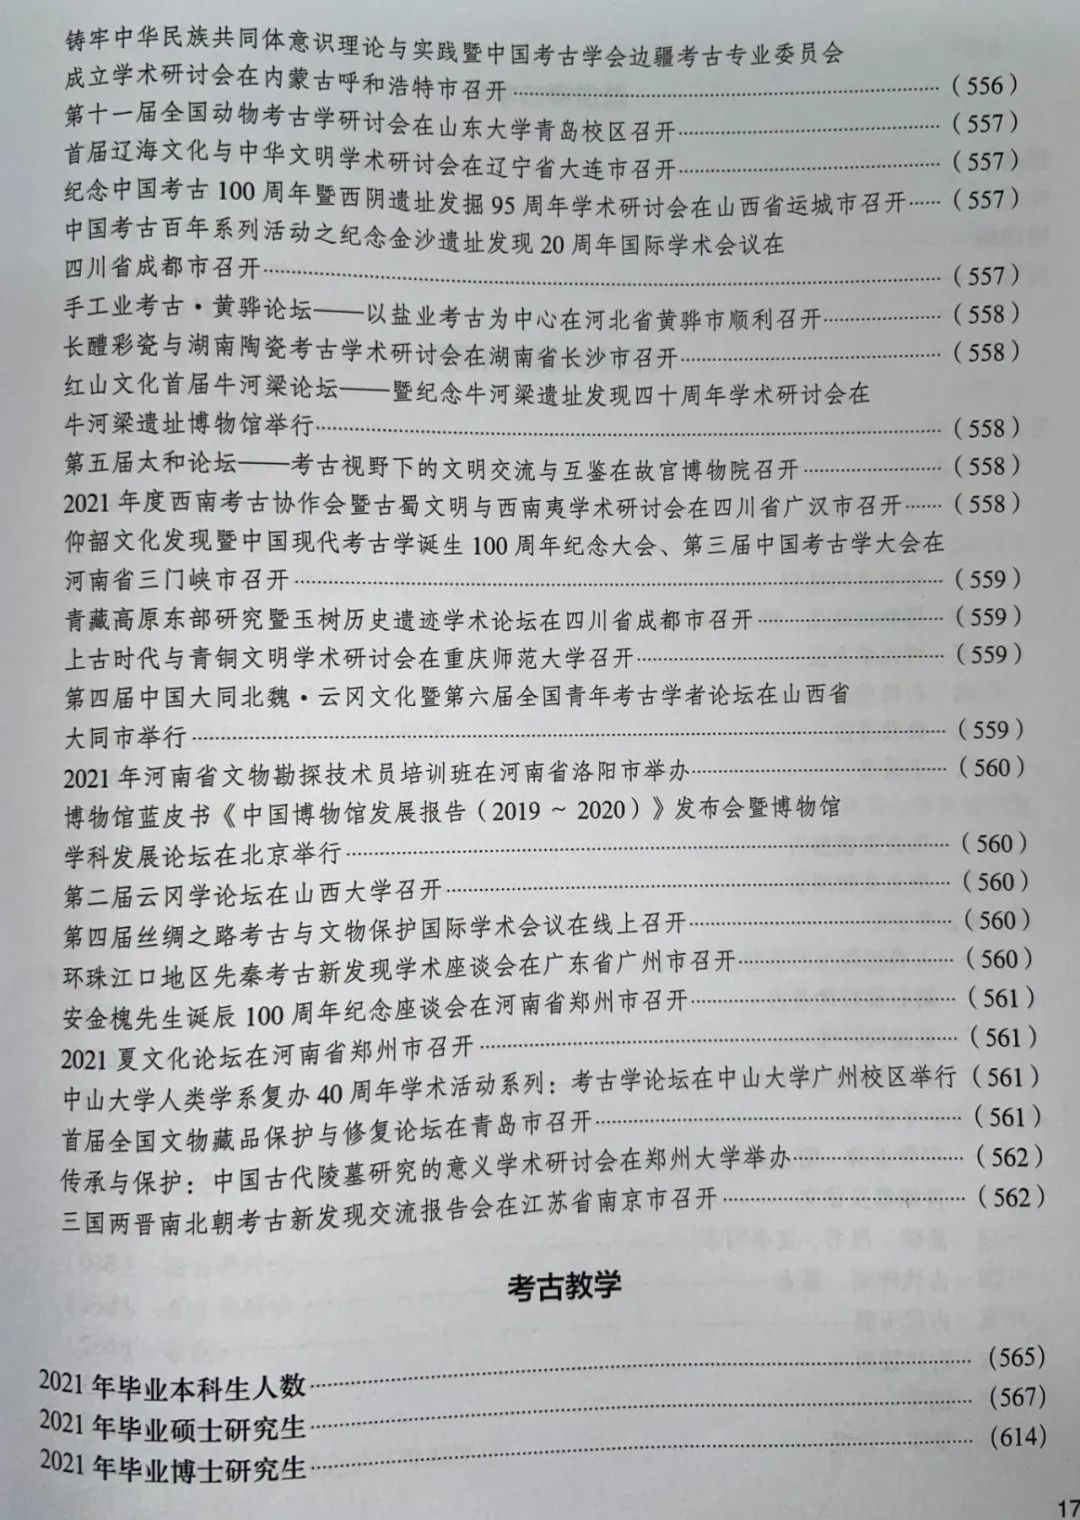 铸牢中华民族共同体意识理论与实践暨中国考古学会边疆考古专业委员会
成立学术研讨会在内蒙古呼和浩特市召开……（556）
第十一届全国动物考古学研讨会在山东大学青岛校区召开……（557）
首届辽海文化与中华文明学术研讨会在辽宁省大连市召开……（557）
纪念中国考古 100 周年暨西阴遗址发掘 95 周年学术研讨会在山西省运城市召开……（557）
中国考古百年系列活动之纪念金沙遗址发现 20 周年国际学术会议在
四川省成都市召开……（557）
手工业考古·黄骅论坛——以盐业考古为中心在河北省黄骅市顺利召开……（558）
长醴彩瓷与湖南陶瓷考古学术研讨会在湖南省长沙市召开……（558）
红山文化首届牛河梁论坛——暨纪念牛河梁遗址发现四十周年学术研讨会在
牛河梁遗址博物馆举行……（558）
第五届太和论坛——考古视野下的文明交流与互鉴在故宫博物院召开……（558）
2021 年度西南考古协作会暨古蜀文明与西南夷学术研讨会在四川省广汉市召开……（558）
仰韶文化发现暨中国现代考古学诞生 100 周年纪念大会、第三届中国考古学大会在
河南省三门峡市召开……（559）
青藏高原东部研究暨玉树历史遗迹学术论坛在四川省成都市召开……（559）
上古时代与青铜文明学术研讨会在重庆师范大学召开……（559）
第四届中国大同北魏·云冈文化暨第六届全国青年考古学者论坛在山西省
大同市举行……（559）
2021 年河南省文物勘探技术员培训班在河南省洛阳市举办……（560）
博物馆蓝皮书《中国博物馆发展报告（2019 ~ 2020）》发布会暨博物馆
学科发展论坛在北京举行……（560）
第二届云冈学论坛在山西大学召开……（560）
第四届丝绸之路考古与文物保护国际学术会议在线上召开……（560）
环珠江口地区先秦考古新发现学术座谈会在广东省广州市召开……（560）
安金槐先生诞辰 100 周年纪念座谈会在河南省郑州市召开……（561）
2021 夏文化论坛在河南省郑州市召开……（561）
中山大学人类学系复办 40 周年学术活动系列：考古学论坛在中山大学广州校区举行（561）
首届全国文物藏品保护与修复论坛在青岛市召开……（561）
传承与保护：中国古代陵墓研究的意义学术研讨会在郑州大学举办……（562）
三国两晋南北朝考古新发现交流报告会在江苏省南京市召开……（562）
考古教学
2021 年毕业本科生人数……（565）
2021 年毕业硕士研究生……（567）
2021 年毕业博士研究生……（614）
17